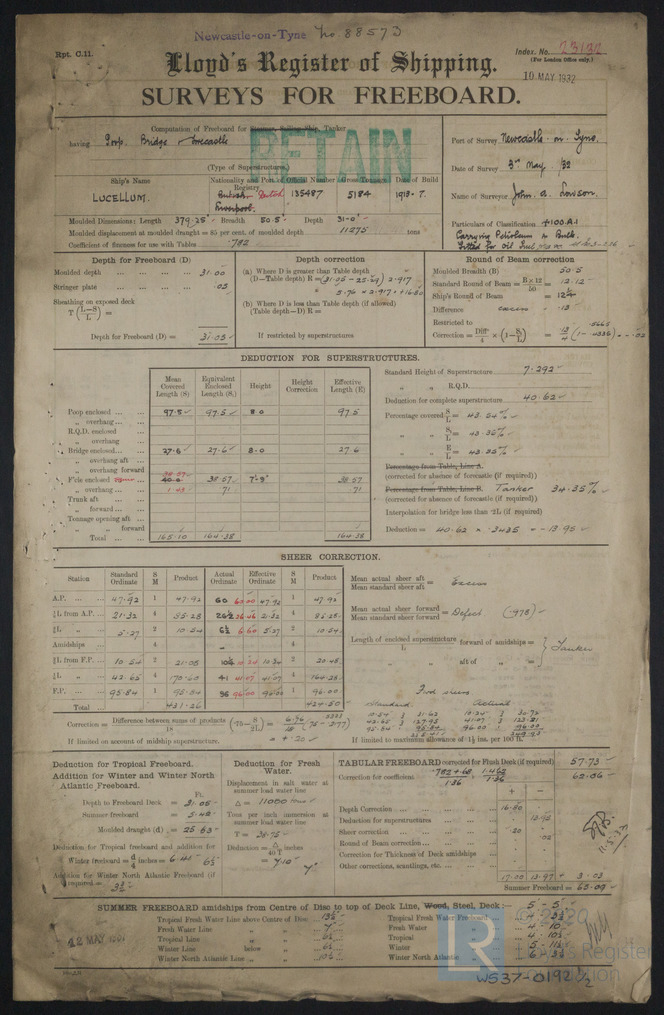 Newcastle-on-Tyne No 88573
Rpt. C.11.
Index. No. 23132
(For London Office only.)
Lloyd's Register of Shipping.
10 MAY 1932
SURVEYS FOR FREEBOARD.
Computation of Freeboard for Steamer, Sailing Ship, Tanker
having Poop Bridge & Forecastle
RETAIN
(Type of Superstructures.)
Port of Survey Newcastle-on-Tyne.
Date of Survey 3rd May /32
Name of Surveyor John A. Lawson.
Particulars of Classification +100.A1
Carrying Petroleum in Bulk.
Fitted for Oil Fuel
Ship's Name
Nationality and Port of Registry
Official Number
Gross Tonnage
Date of Build
LUCELLUM.
British
Liverpool.
135487
5184
1913-7.
Moulded Dimensions: Length 379.25' Breadth 50.5' Depth 31.0'
Moulded displacement at moulded draught = 85 per cent. of moulded depth 11275 tons
Coefficient of fineness for use with Tables .782
Depth for Freeboard (D)
Moulded depth ... 31.00
Stringer plate ... .05
Sheathing on exposed deck
T (L-S/L) =
Depth for Freeboard (D) = 31.05
Depth correction
(a) Where D is greater than Table depth
(D-Table depth) R = (31.05-25.29) 2.917
5.76 × 2.917 = +16.80
(b) Where D is less than Table depth (if allowed)
(Table depth-D) R =
If restricted by superstructures
Round of Beam correction
Moulded Breadth (B) 50.5
Standard Round of Beam = B×12/50 = 12.12
Ship's Round of Beam = 12¼
Difference excess .13
Restricted to
Correction = Diff/4 × (1-S/L) = .13/4 (1-.4335) = -.02
DEDUCTION FOR SUPERSTRUCTURES.
Mean Covered Length (S)
Equivalent Enclosed Length (S₁)
Height
Height Correction
Effective Length (E)
Poop enclosed ... 97.5 97.5 8.0 97.5
" overhang ...
R.Q.D. enclosed
" overhang
Bridge enclosed ... 27.6 27.6 8.0 27.6
" overhang aft
" overhang forward
F'cle enclosed 38.57 40.0 38.57 7'-9" 38.57
" overhang ... 1.43 .71 .71
Trunk aft
" forward ...
Tonnage opening aft
" " forward
Total ... 165.10 164.38 164.38
Standard Height of Superstructure 7.292
" " R.Q.D.
Deduction for complete superstructure 40.62
Percentage covered S/L = 43.54%
" " S₁/L = 43.35%
" " E/L = 43.35%
Percentage from Table, Line A.
(corrected for absence of forecastle (if required))
Percentage from Table, Line B. Tanker 34.35%
(corrected for absence of forecastle (if required))
Interpolation for bridge less than ·2L (if required)
Deduction = 40.62 × .3435 = -13.95
SHEER CORRECTION.
Station
Standard Ordinate
S M
Product
Actual Ordinate
Effective Ordinate
S M
Product
A.P. ... 47.92 1 47.92 60 60.00 47.92 1 47.92
⅙L from A.P. ... 21.32 4 85.28 26½ 21.32 4 85.28
⅓L " 5.27 2 10.54 6½ 6.60 5.27 2 10.54
Amidships 4 4
⅓L from F.P. ... 10.54 2 21.08 10¼ 10.24 2 20.48
⅙L " ... 42.65 4 170.60 41 41.07 41.07 4 164.28
F.P. ... 95.84 1 95.84 96 96.00 96.00 1 96.00
Total ... 431.26 424.50
Mean actual sheer aft / Mean standard sheer aft = Excess
Mean actual sheer forward / Mean standard sheer forward = Defect (.978)
Length of enclosed superstructure / L forward of amidships = } Tanker
" " aft of " =
Fwd sheers
Standard. Actual.
10.54 3 31.62 10.24 3 30.72
42.65 3 127.95 41.07 3 123.21
95.84 1 95.84 96.00 1 96.00
Correction = Difference between sums of products / 18 (·75-S/2L) = 6.76/18 (.75-.217) = + .20
If limited on account of midship superstructure.
If limited to maximum allowance of 1½ ins. per 100 ft.
Deduction for Tropical Freeboard.
Addition for Winter and Winter North Atlantic Freeboard.
Ft.
Depth to Freeboard Deck = 31.05
Summer freeboard = 5.42
Moulded draught (d) = 25.63
Deduction for Tropical freeboard and addition for
Winter freeboard = d/4 inches = 6.41 6½
Addition for Winter North Atlantic Freeboard (if required) =
Deduction for Fresh Water.
Displacement in salt water at summer load water line
Δ = 11000 tons
Tons per inch immersion at summer load water line
T = 38.75
Deduction = Δ/40T inches
= 7.10 7"
TABULAR FREEBOARD corrected for Flush Deck (if required) 57.73
Correction for coefficient .782+.68/1.36 1.462/1.36 62.06
+ -
Depth Correction ... 16.80
Deduction for superstructures ... 13.95
Sheer correction ... .20
Round of Beam correction ... .02
Correction for Thickness of Deck amidships
Other corrections, scantlings, etc. ...
17.00 13.97 + 3.03
Summer Freeboard = 65.09
SUMMER FREEBOARD amidships from Centre of Disc to top of Deck Line, Wood, Steel, Deck:— 5 - 5
Tropical Fresh Water Line above Centre of Disc ... 13½"
Fresh Water Line " " ... 7"
Tropical Line " " ... 6½
Winter Line below " ... 6½
Winter North Atlantic Line " " ...
Tropical Fresh Water Freeboard
Fresh Water " 4 - 10
Tropical " 4 - 10½
Winter " 5 - 11½
Winter North Atlantic "
LR
Lloyd's Register
Foundation
W537-0192 ½